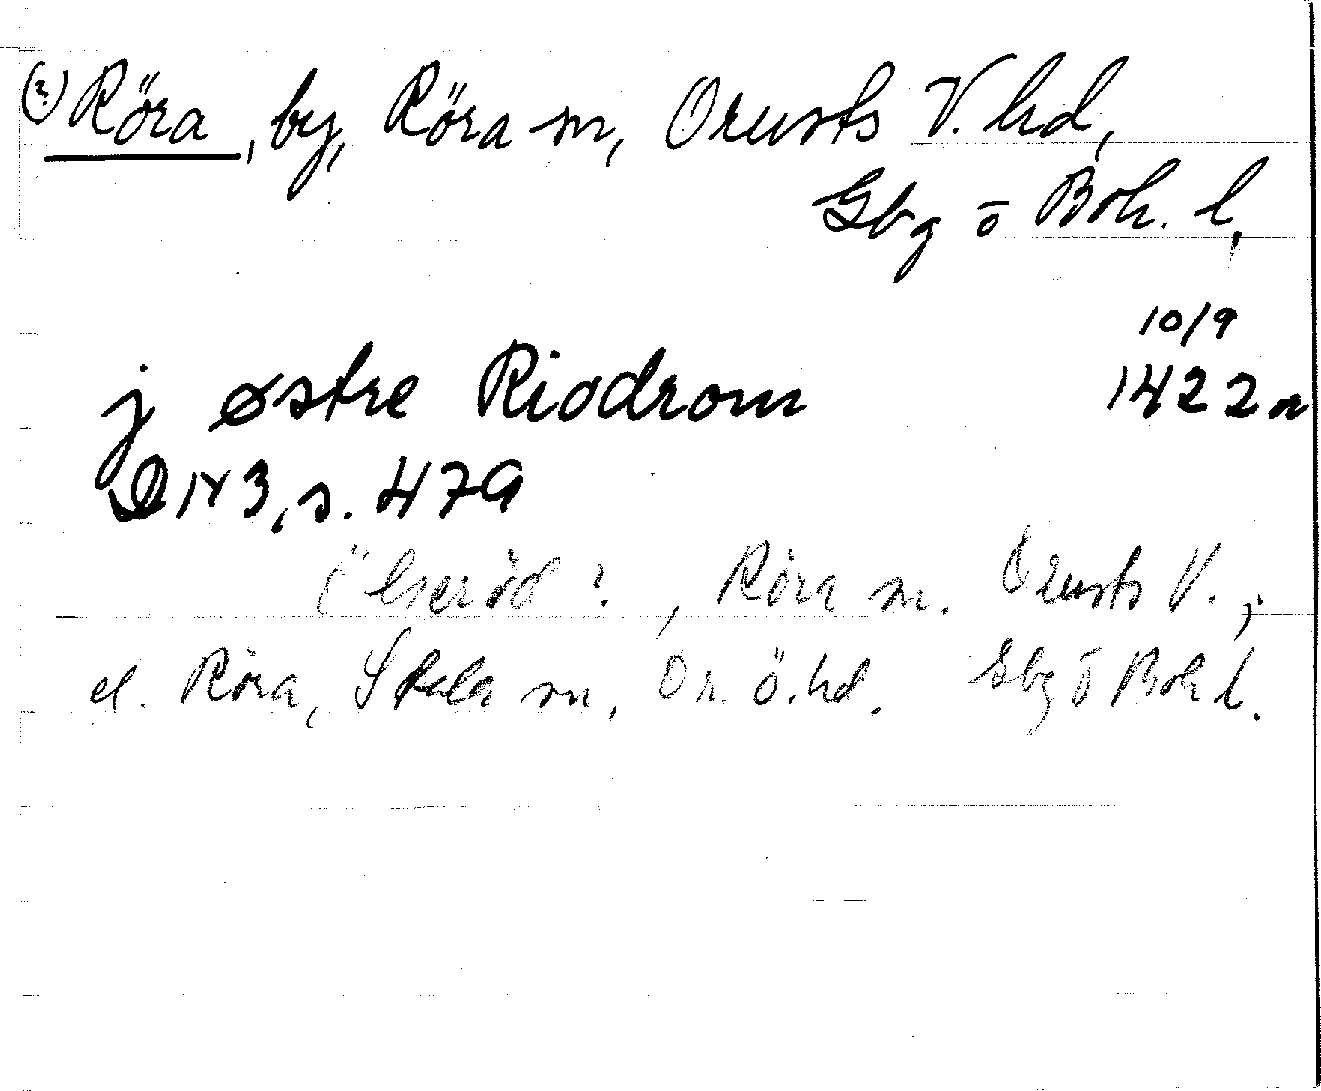 (?) Röra, by, Röra sn, Orusts V. hd,
Gbg o Boh. l,
10/9
j østre Riodrom 1422 or
DN 3, s. 479
?, Röra sn. Orusts V.,
el. Röra, Stala sn, Or. ö. hd. Gbg o Boh l.